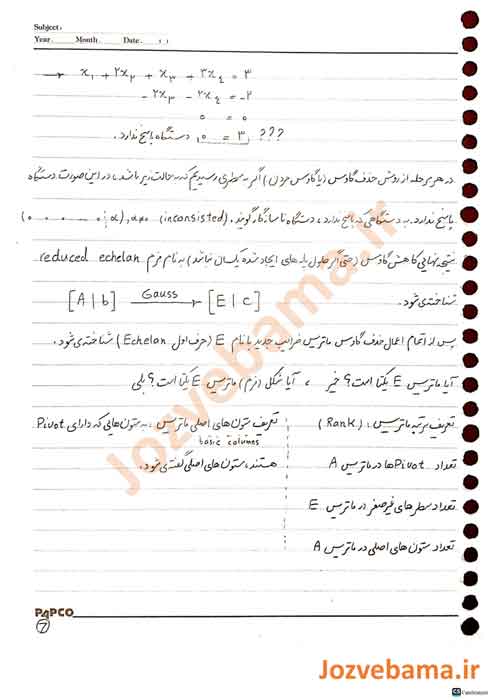 Subject:
Year. Month. Date. ( )
→ x₁ + ۲x₂ + x₃ + ۳x₄ = ۳
- ۲x₃ - ۲x₄ = -۲
۰ = ۰
۰ = ۳ , دستگاه پاسخ ندارد. ???
در هر مرحله از روش حذف گاوس (یا گاوس جردن) اگر به سطری رسیدیم که به حالت زیر باشد، در این صورت دستگاه
پاسخ ندارد. به دستگاهی که پاسخ ندارد، دستگاه ناسازگار گویند. (inconsisted) (۰ ۰ ۰ ... ۰ ¦ α), α≠۰
نتیجه نهایی کاهش گاوس (حتی اگر طول پله های ایجاد شده یکسان نباشد) به نام فرم reduced echelan
شناخته می شود.
[A | b] Gauss → [E | c]
پس از اتمام اعمال حذف گاوس ماتریس ضرایب جدید با نام E (حرف اول Echelan) شناخته می شود.
آیا ماتریس E یکتا است؟ خیر , آیا شکل (فرم) ماتریس E یکتا است؟ بلی
تعریف رتبه ماتریس، (Rank)
تعداد Pivotها در ماتریس A
تعداد سطرهای غیرصفر در ماتریس E
تعداد ستون های اصلی در ماتریس A
تعریف ستون های اصلی ماتریس، به ستون هایی که دارای Pivot
basic columns
هستند، ستون های اصلی گفته می شود.
PAPCO
۷
Jozvebama.ir
Jozvebama.ir
CS CamScanner